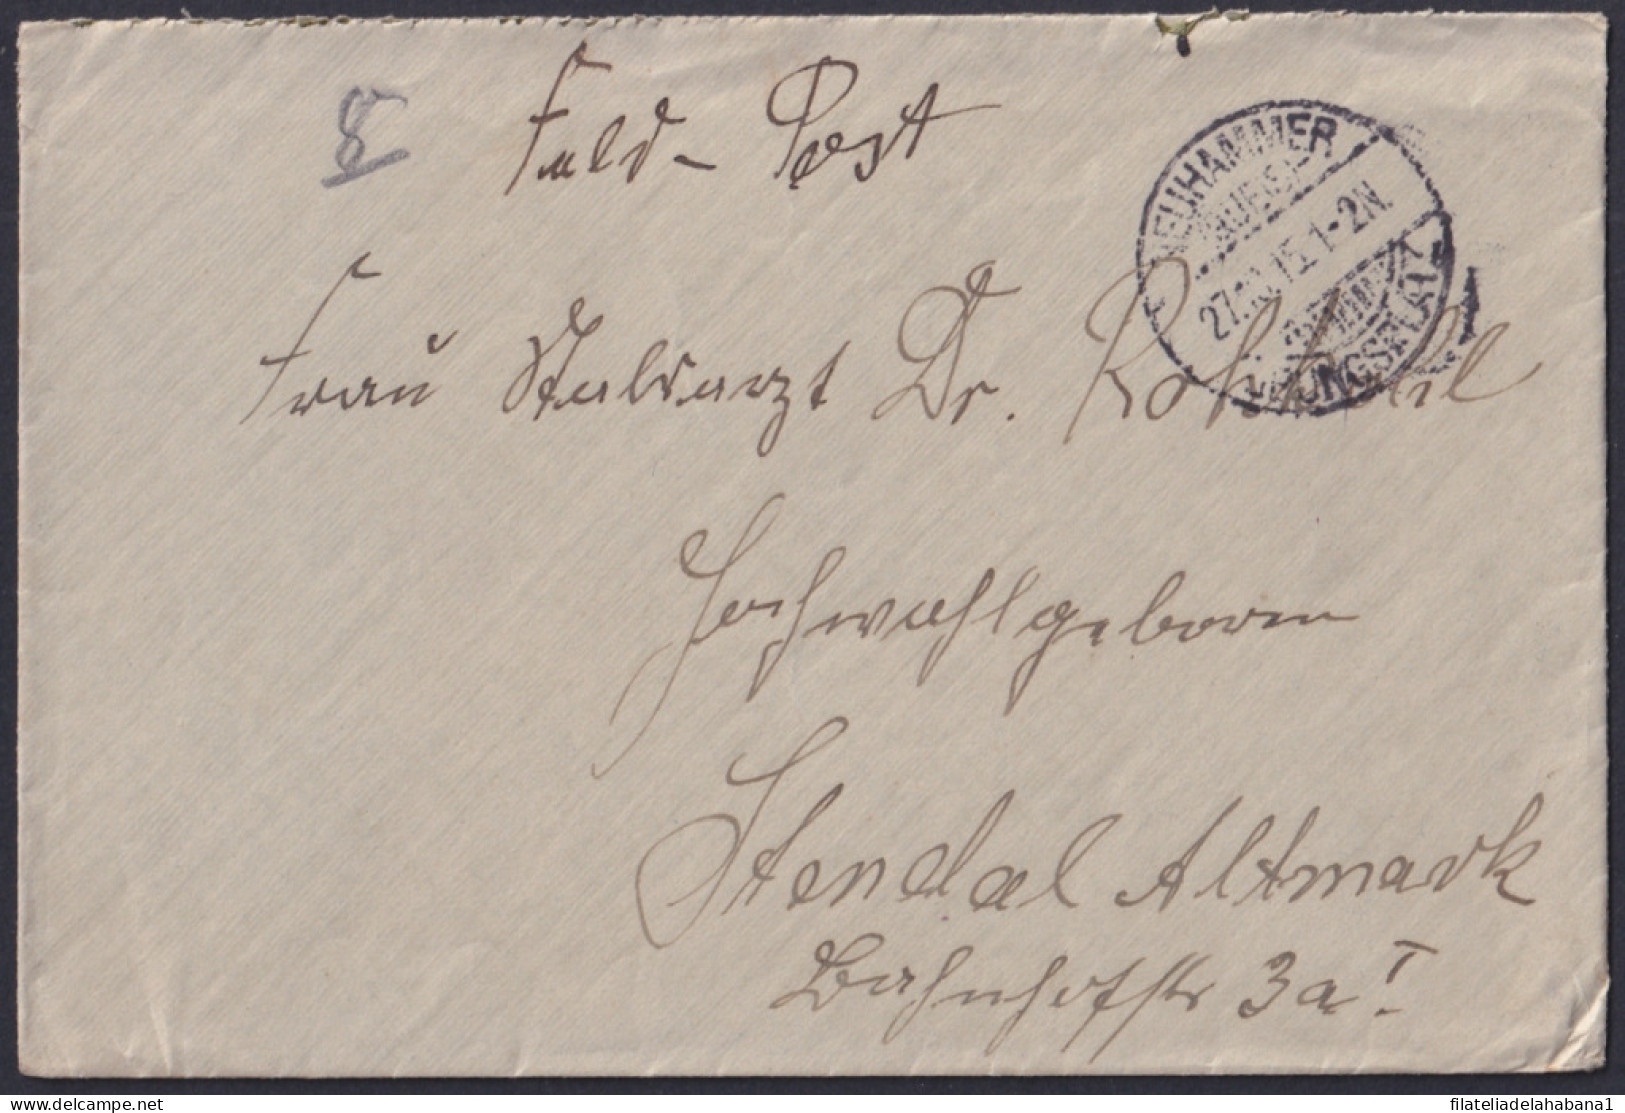 8
Feld-Post
NEUHAMMER
(QUEIS)
27.10.15. 1-2N.
ÜBUNGSPLATZ
Frau Stabsarzt Dr.
Hochwohlgeboren
Stendal Altmark
Bahnhofstr 3a I
filateliadelahabana1
www.delcampe.net